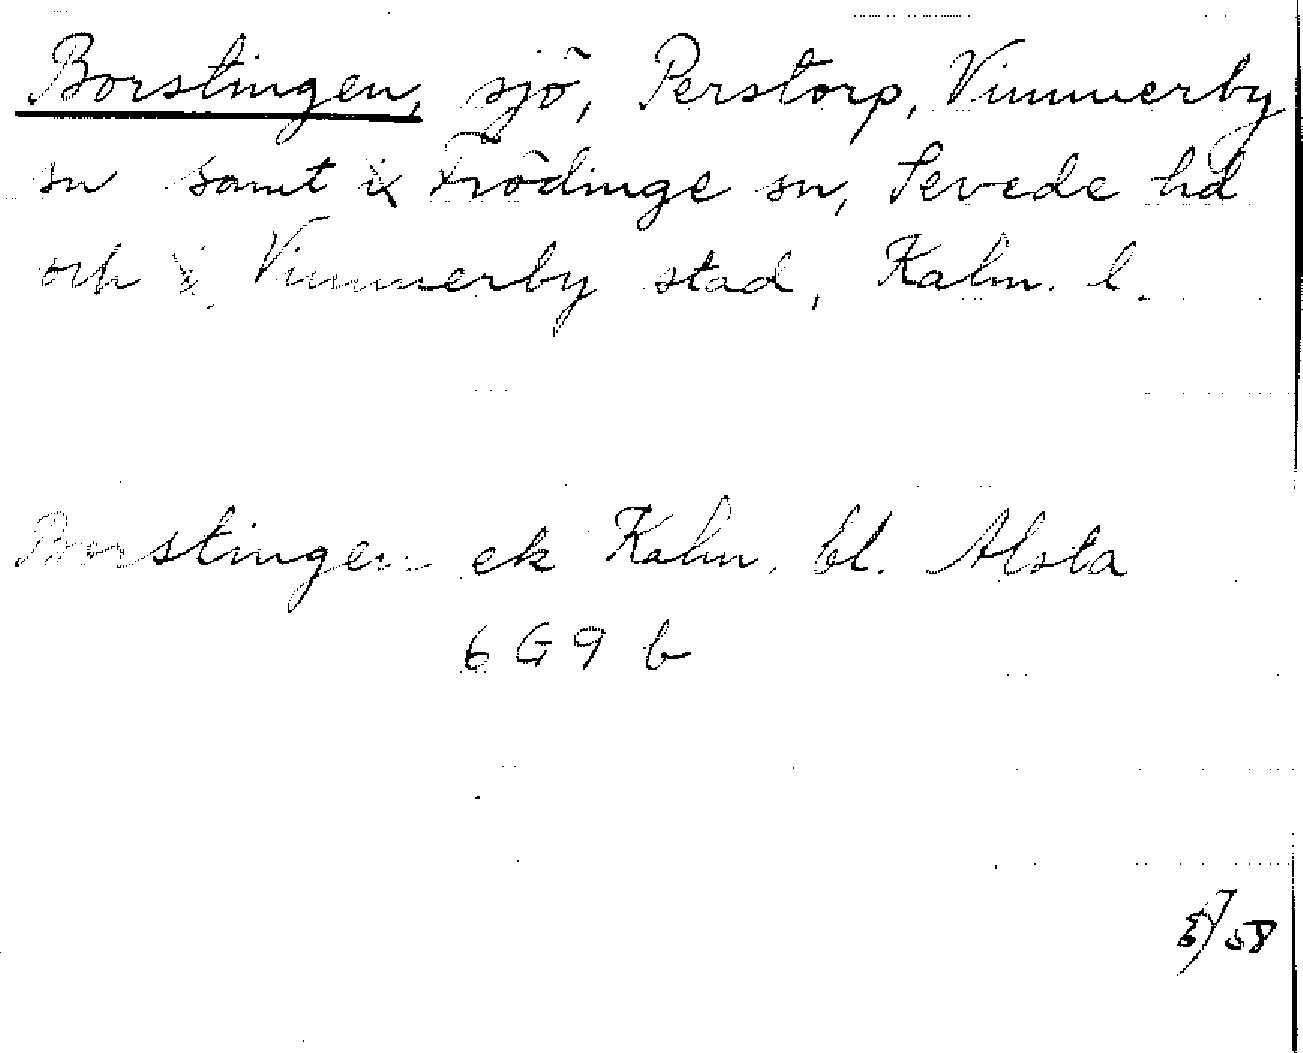 Borstingen, sjö, Perstorp, Vimmerby
sn samt i Frödinge sn, Sevede hd
och i Vimmerby stad, Kalm. l.
Borstingen ek Kalm. bl. Alsta
6 G 9 b